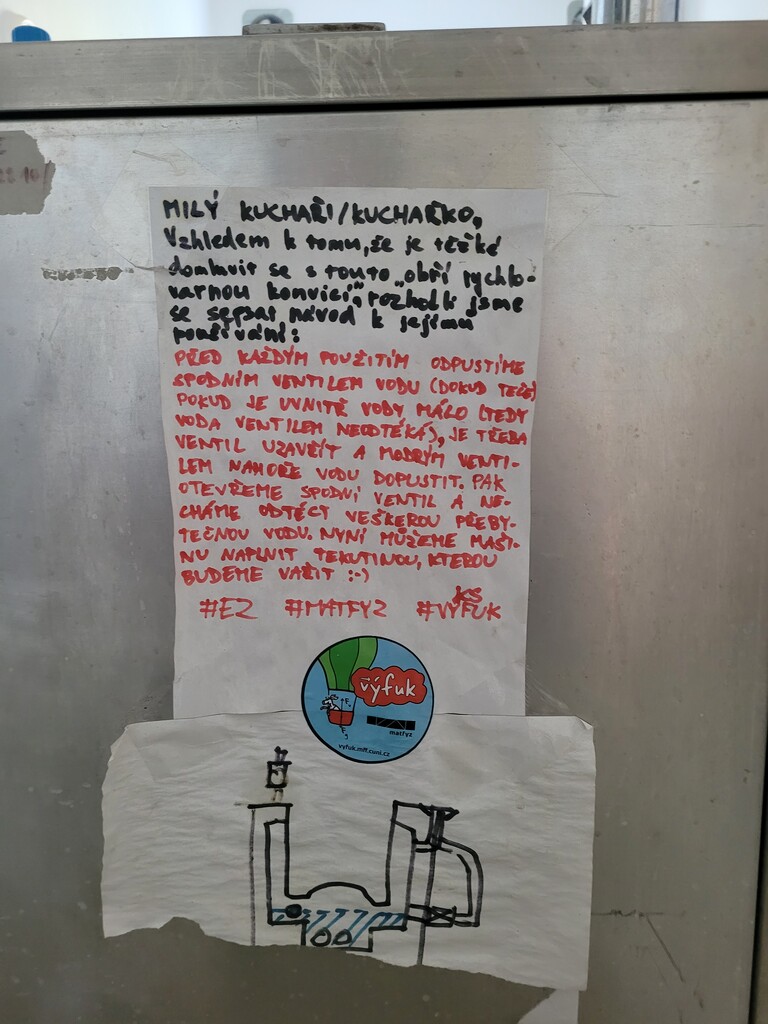 MILÝ KUCHAŘI/KUCHAŘKO,
Vzhledem k tomu, že je těžké
domluvit se s touto „obří rychlo-
varnou konvicí", rozhodli jsme
se sepsat návod k jejímu
používání:
PŘED KAŽDÝM POUŽITÍM ODPUSTÍME
SPODNÍM VENTILEM VODU (DOKUD TEČE)
POKUD JE UVNITŘ VODY MÁLO (TEDY
VODA VENTILEM NEODTÉKÁ), JE TŘEBA
VENTIL UZAVŘÍT A MODRÝM VENTI-
LEM NAHOŘE VODU DOPUSTIT. PAK
OTEVŘEME SPODNÍ VENTIL A NE-
CHÁME ODTÉCT VEŠKEROU PŘEBY-
TEČNOU VODU. NYNÍ MŮŽEME MAŠI-
NU NAPLNIT TEKUTINOU, KTEROU
BUDEME VAŘIT :-)
KS
#EZ #MATFYZ #VÝFUK
výfuk
matfyz
vyfuk.mff.cuni.cz